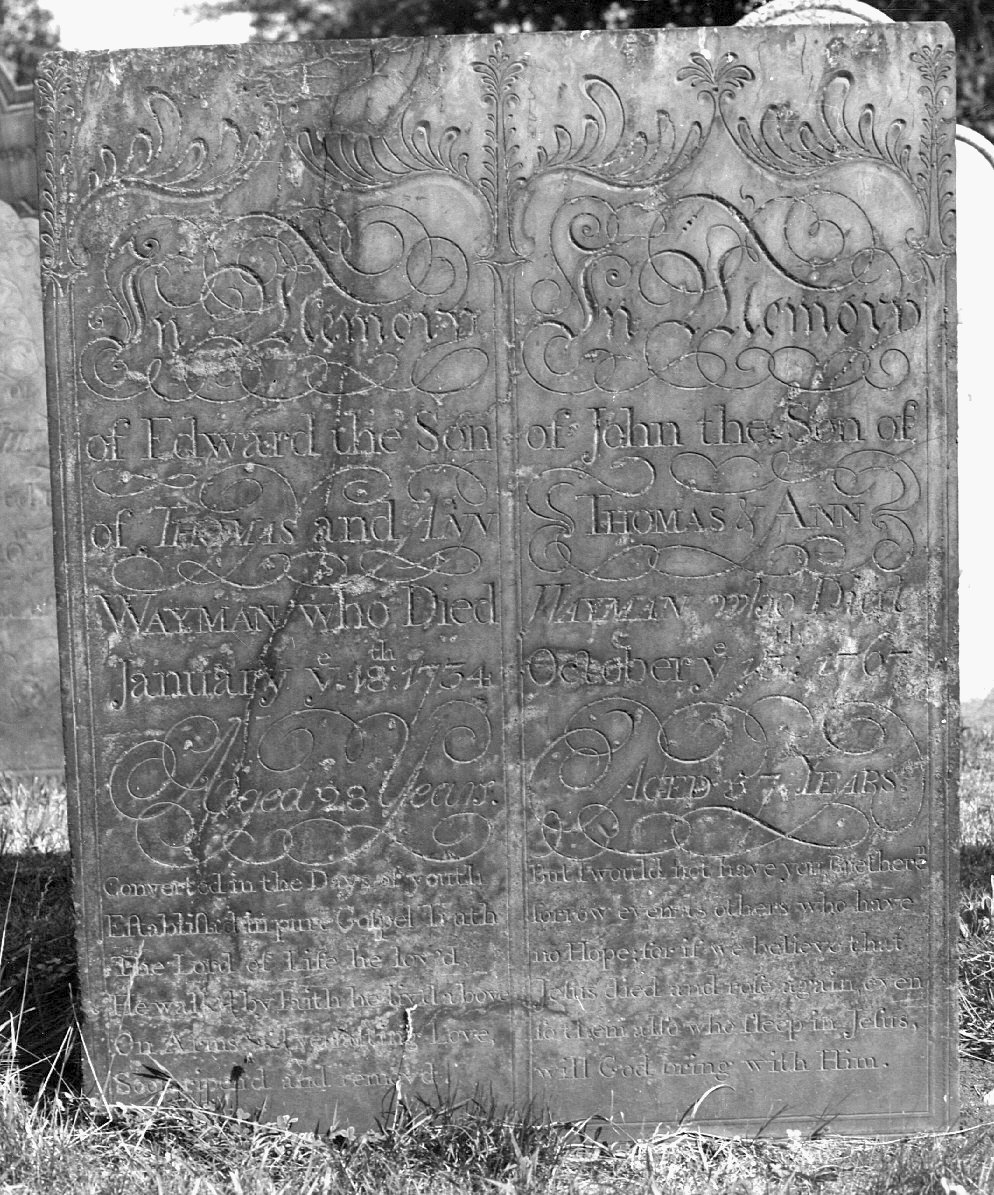 In Memory
of Edward the Son
of THOMAS and ANN
WAYMAN who Died
January yᵉ 18ᵗʰ: 1734
Aged 28 Years.
Converted in the Days of youth
Eſtabliſh'd in pure Goſpel Truth
The Lord of Life he lov'd,
He walk'd by Faith he liv'd above
On Arms of Everlaſting Love,
Soon ripen'd and remov'd
In Memory
of John the Son of
THOMAS & ANN
WAYMAN who Died
October yᵉ 1767
AGED 57 YEARS.
But I would not have you Breetheren
ſorrow even as others who have
no Hope; for if we believe that
Jeſus died and roſe again, even
ſo them alſo who ſleep in Jeſus,
will God bring with Him.